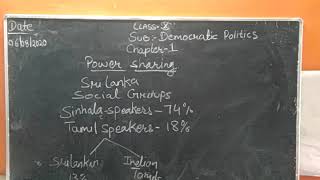 Date
06/08/2020
Class-X
Sub:- Democratic Politics
Chapter-1
Power sharing
Sri Lanka
Social Groups
Sinhala-speakers - 74%
Tamil Speakers - 18%
Srilankan Indian
13% Tamils